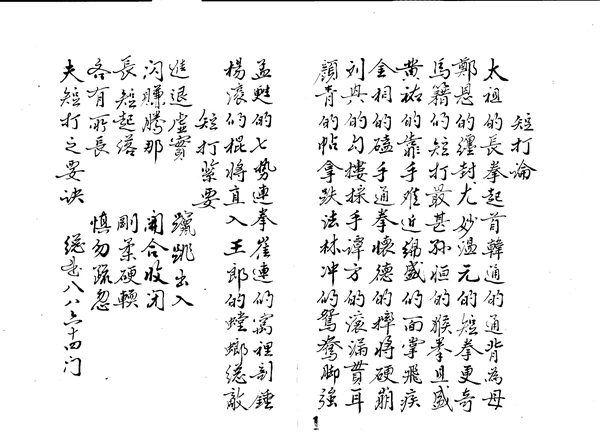 短打論
太祖的長拳起首韓通的通背為母
鄭恩的纏封尤妙溫元的短拳更奇
馬籍的短打最甚孫恒的猴拳且盛
黄祐的靠手難近綿盛的面掌飛疾
金相的磕手通拳懷德的摔将硬崩
刘興的勾摟採手譚方的滾漏貫耳
顏青的帖拿跌法林冲的鴛鴦脚強
孟甦的七势連拳崔連的窩裡剖錘
楊滾的棍将直入王郎的螳螂總敵
短打緊要
進退虛實 躥跳出入
闪賺騰那 開合收闭
長短起落 剛柔硬輭
各有所長 慎勿疏忽
夫短打之要诀 總是八八六十四门
1